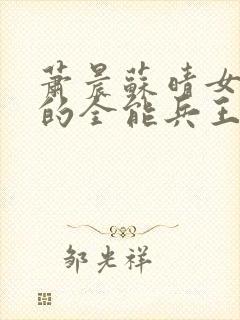 萧晨蘇晴女
的全能兵王
邹光祥